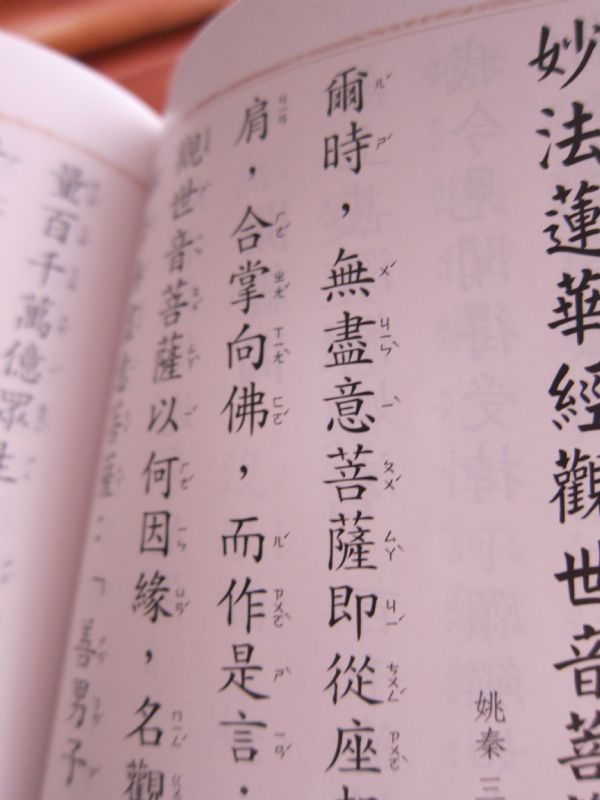 妙法蓮華經觀世音菩
姚秦三
爾時，無盡意菩薩即從座
肩，合掌向佛，而作是言，
觀世音菩薩以何因緣，名觀
菩薩：「善男子
量百千萬億眾生